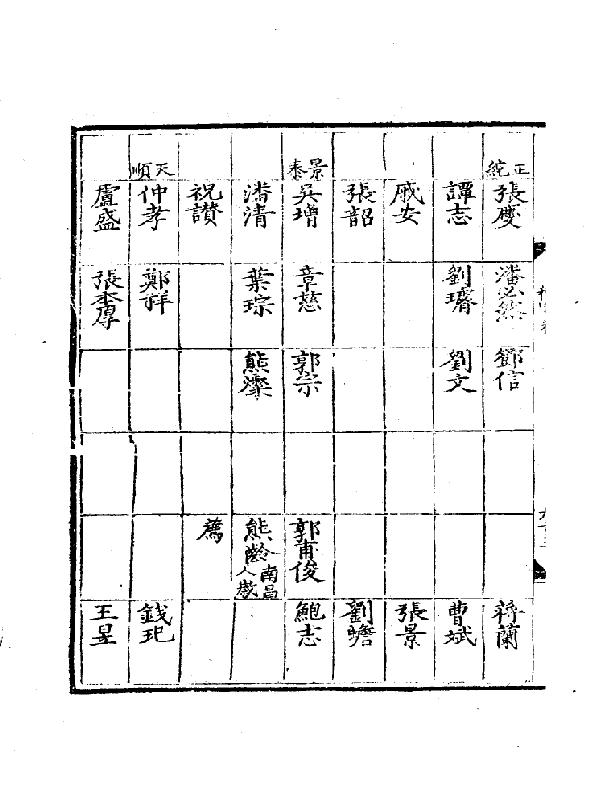 正統
張慶 潘必然 鄧信 蔣蘭
譚志 劉璿 劉文 曹斌
戚安 張景
張韶 劉瞻
景泰
吳增 章慈 郭宗 郭甫俊 鮑志
潘清 葉琮 熊燦 熊齡南昌人歲
祝讃 薦
天順
仲孝 鄭祥 錢玘
盧盛 張本厚 王昱